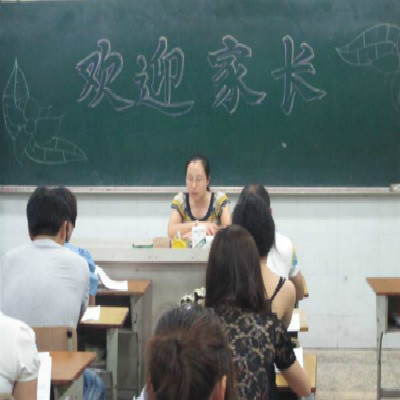 欢迎家长